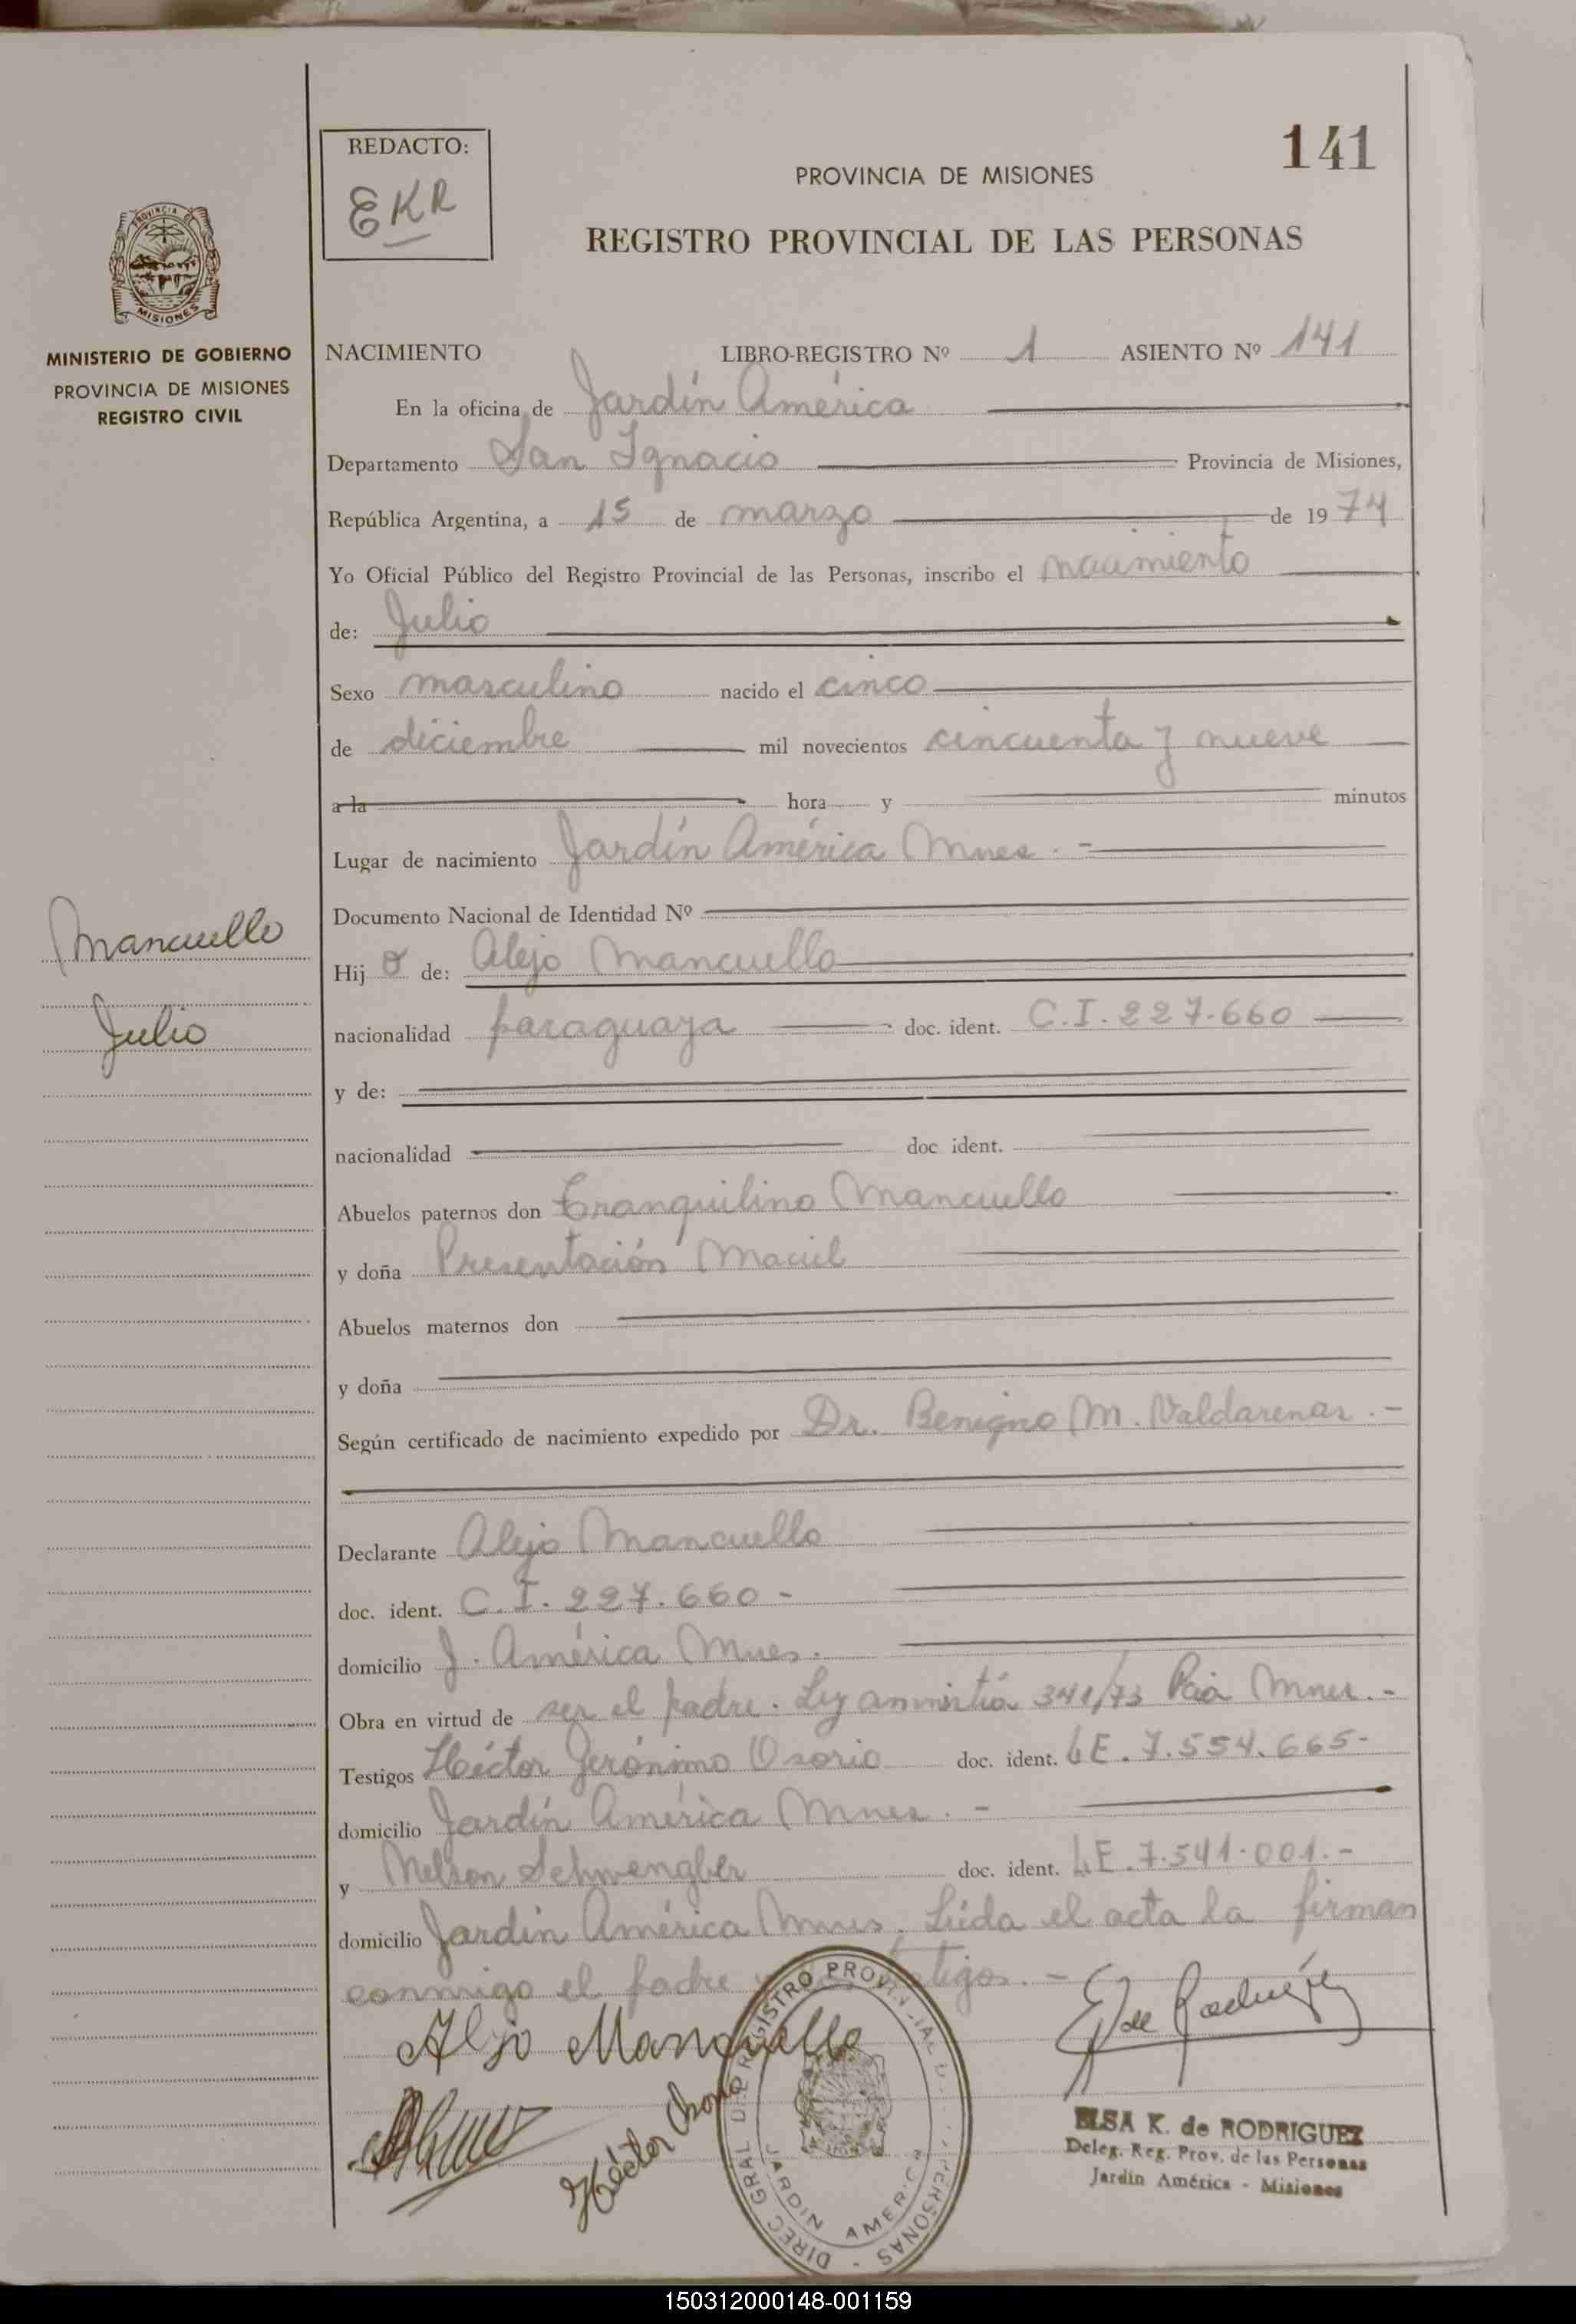 REDACTO:
EKR
141
PROVINCIA DE MISIONES
REGISTRO PROVINCIAL DE LAS PERSONAS
PROVINCIA DE
MISIONES
MINISTERIO DE GOBIERNO
PROVINCIA DE MISIONES
REGISTRO CIVIL
NACIMIENTO LIBRO-REGISTRO Nº 1 ASIENTO Nº 141
En la oficina de Jardín América
Departamento San Ignacio Provincia de Misiones,
República Argentina, a 15 de marzo de 1974
Yo Oficial Público del Registro Provincial de las Personas, inscribo el nacimiento
de: Julio
Sexo masculino nacido el cinco
de diciembre mil novecientos cincuenta y nueve
a la hora y minutos
Lugar de nacimiento Jardín América Mnes. -
Documento Nacional de Identidad Nº
Mancuello
Julio
Hijo de: Alejo Mancuello
nacionalidad paraguaya doc. ident. C.I. 227.660
y de:
nacionalidad doc ident.
Abuelos paternos don Tranquilino Mancuello
y doña Presentación Maciel
Abuelos maternos don
y doña
Según certificado de nacimiento expedido por Dr. Benigno M. Valdarenas. -
Declarante Alejo Mancuello
doc. ident. C.I. 227.660 -
domicilio J. América Mnes.
Obra en virtud de ser el padre. Ley amnistía 341/73 Pcia Mnes. -
Testigos Héctor Jerónimo Osorio doc. ident. LE. 7.554.665-
domicilio Jardín América Mnes. -
y Nelson Schwengber doc. ident. LE. 7.541.001. -
domicilio Jardín América Mnes. Leída el acta la firman
conmigo el padre y los testigos. -
Alejo Mancuello
Héctor
DIREC. GRAL DEL REGISTRO PROVINCIAL DE LAS PERSONAS -
JARDIN AMERICA
E de Rodríguez
ELSA K. de RODRIGUEZ
Deleg. Reg. Prov. de las Personas
Jardín América - Misiones
150312000148-001159